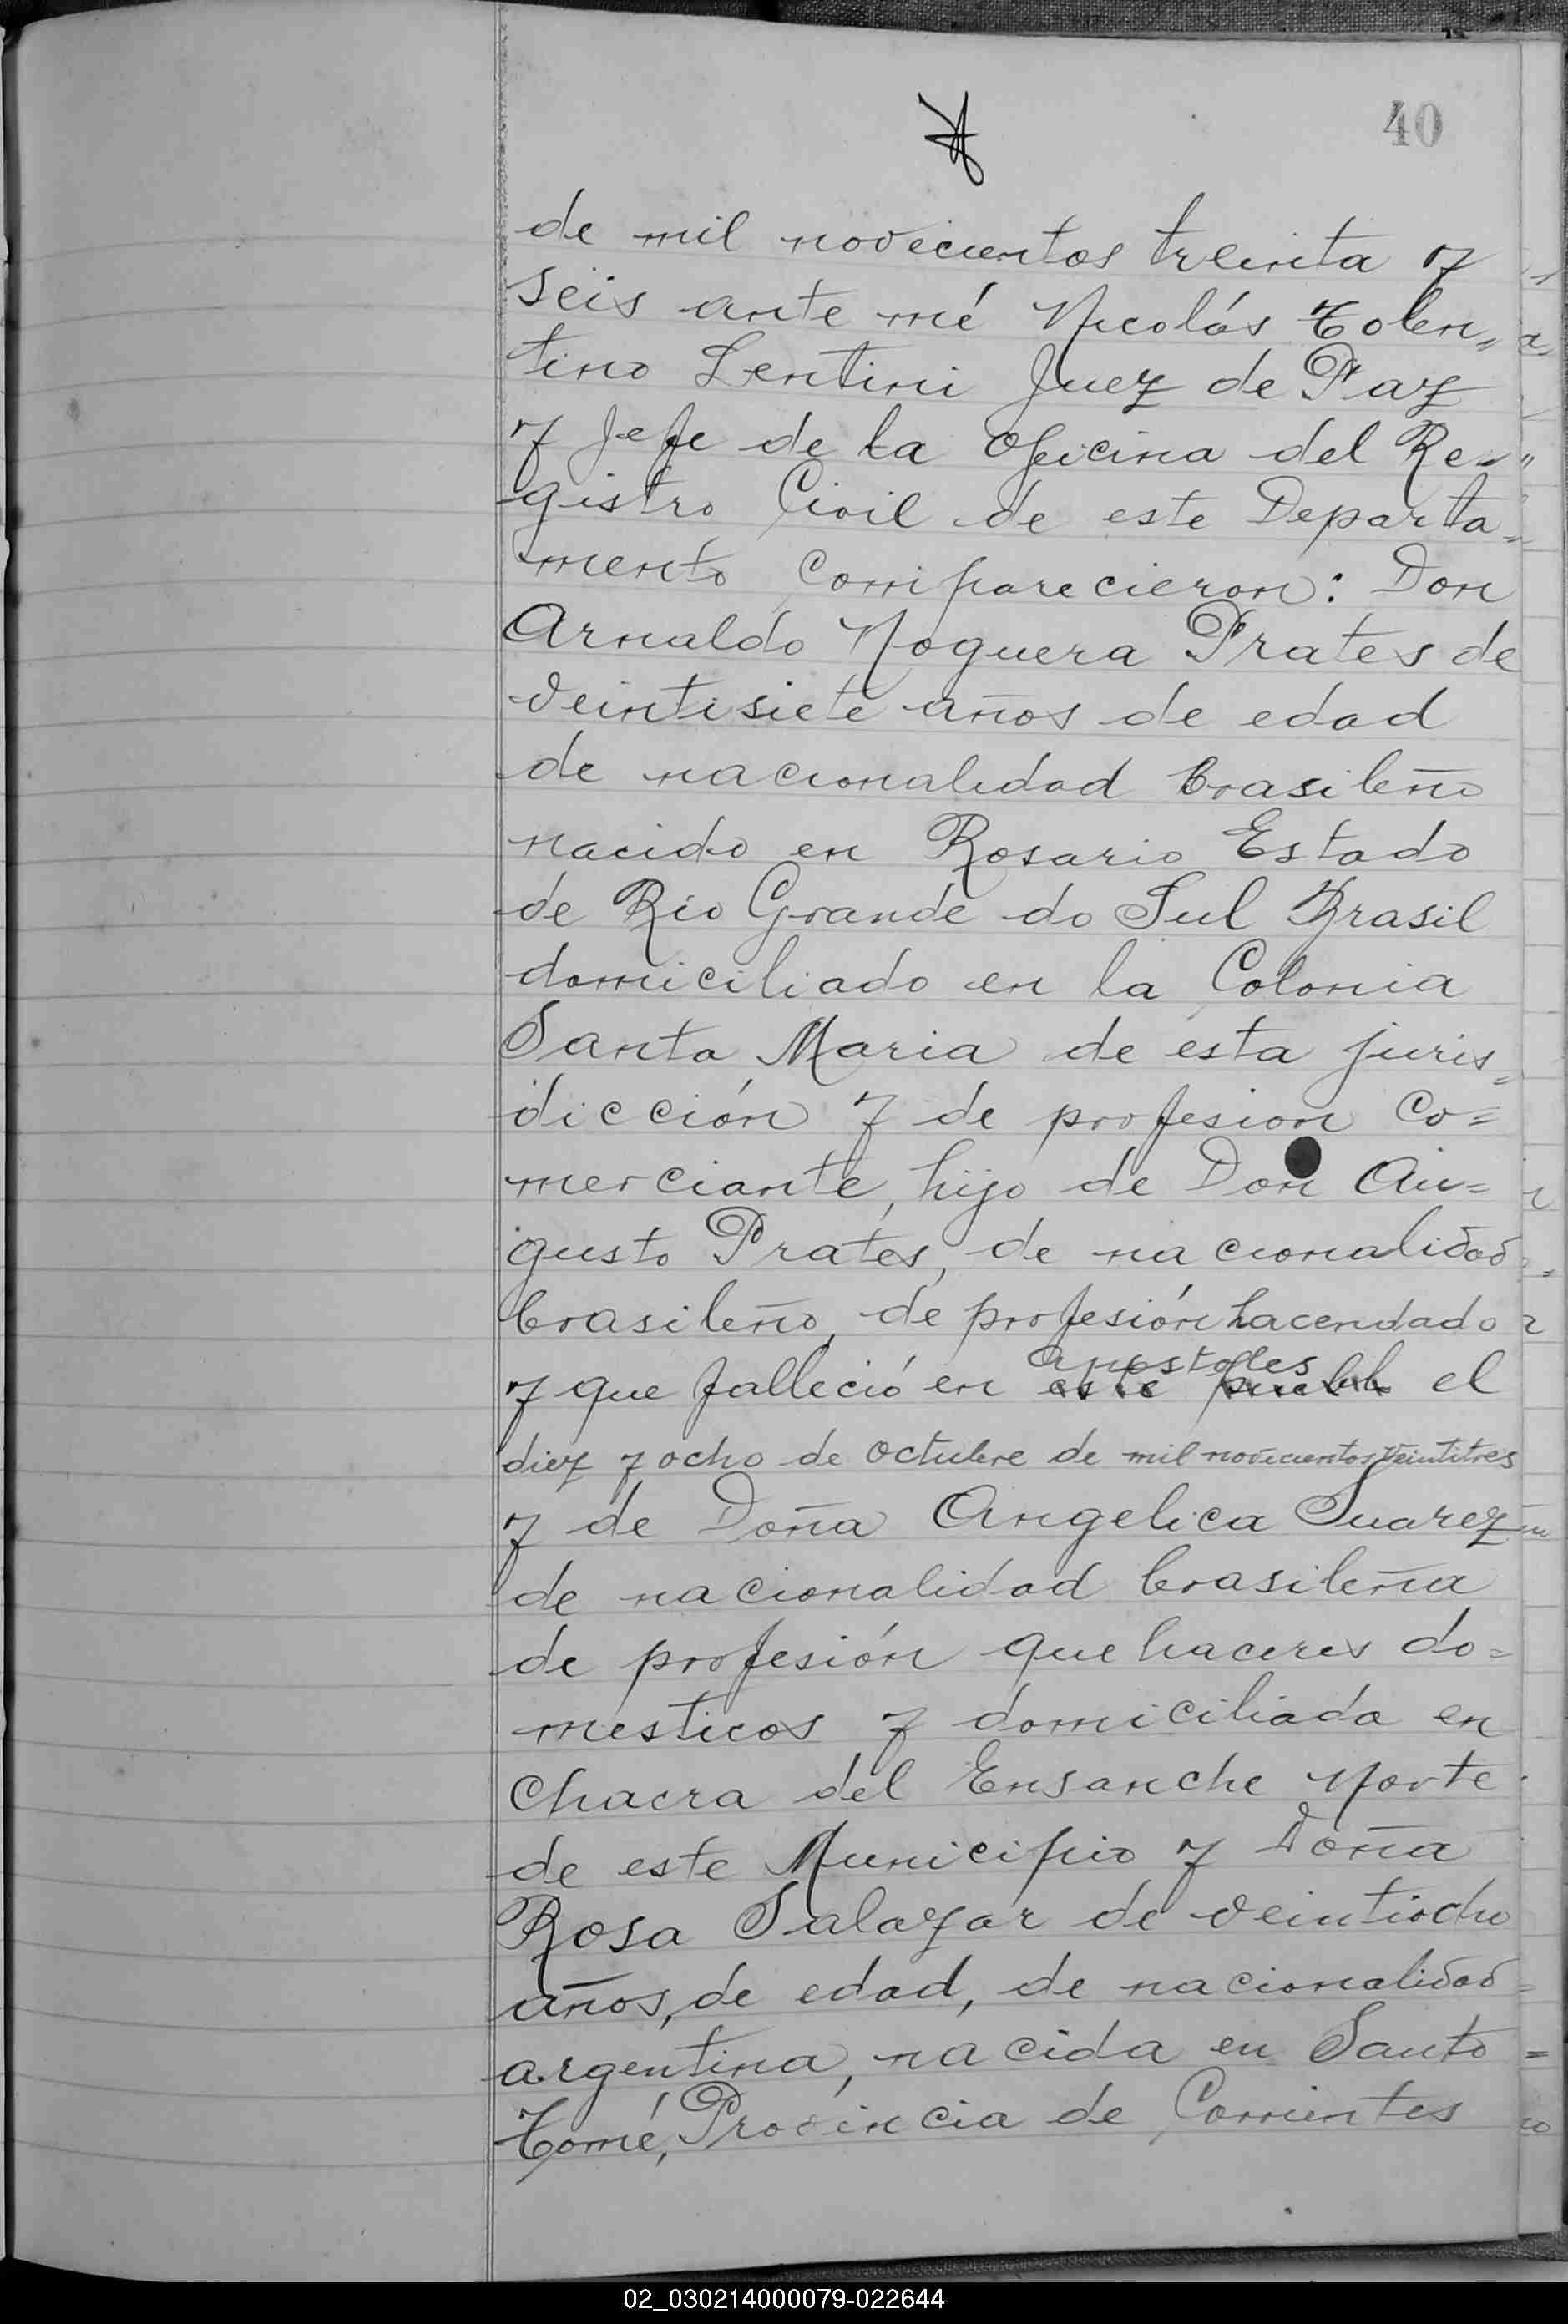 40
de mil novecientos treinta y
seis ante mé Nicolás Tolen„
tino Lentini Juez de Paz
y Jefe de la Oficina del Re„
gistro Civil de este Departa=
mento comparecieron: Don
Arnaldo Noguera Prates de
veintisiete años de edad
de nacionalidad brasileño
nacido en Rosario Estado
de Rio Grande do Sul Brasil
domiciliado en la Colonia
Santa Maria de esta juris=
dicción y de profesion co=
merciante, hijo de Don Au=
gusto Prates, de nacionalidad
brasileño, de profesión hacendado
Apostoles
y que falleció en este pueblo el
diez y ocho de octubre de mil novecientos veintitres
y de Doña Angelica Suarez
de nacionalidad brasileña
de profesión quehaceres do=
mesticos y domiciliada en
chacra del Ensanche Norte
de este Municipio y Doña
Rosa Salazar de veintiocho
años, de edad, de nacionalidad
argentina, nacida en Santo
Tomé, Provincia de Corrientes
02_030214000079-022644